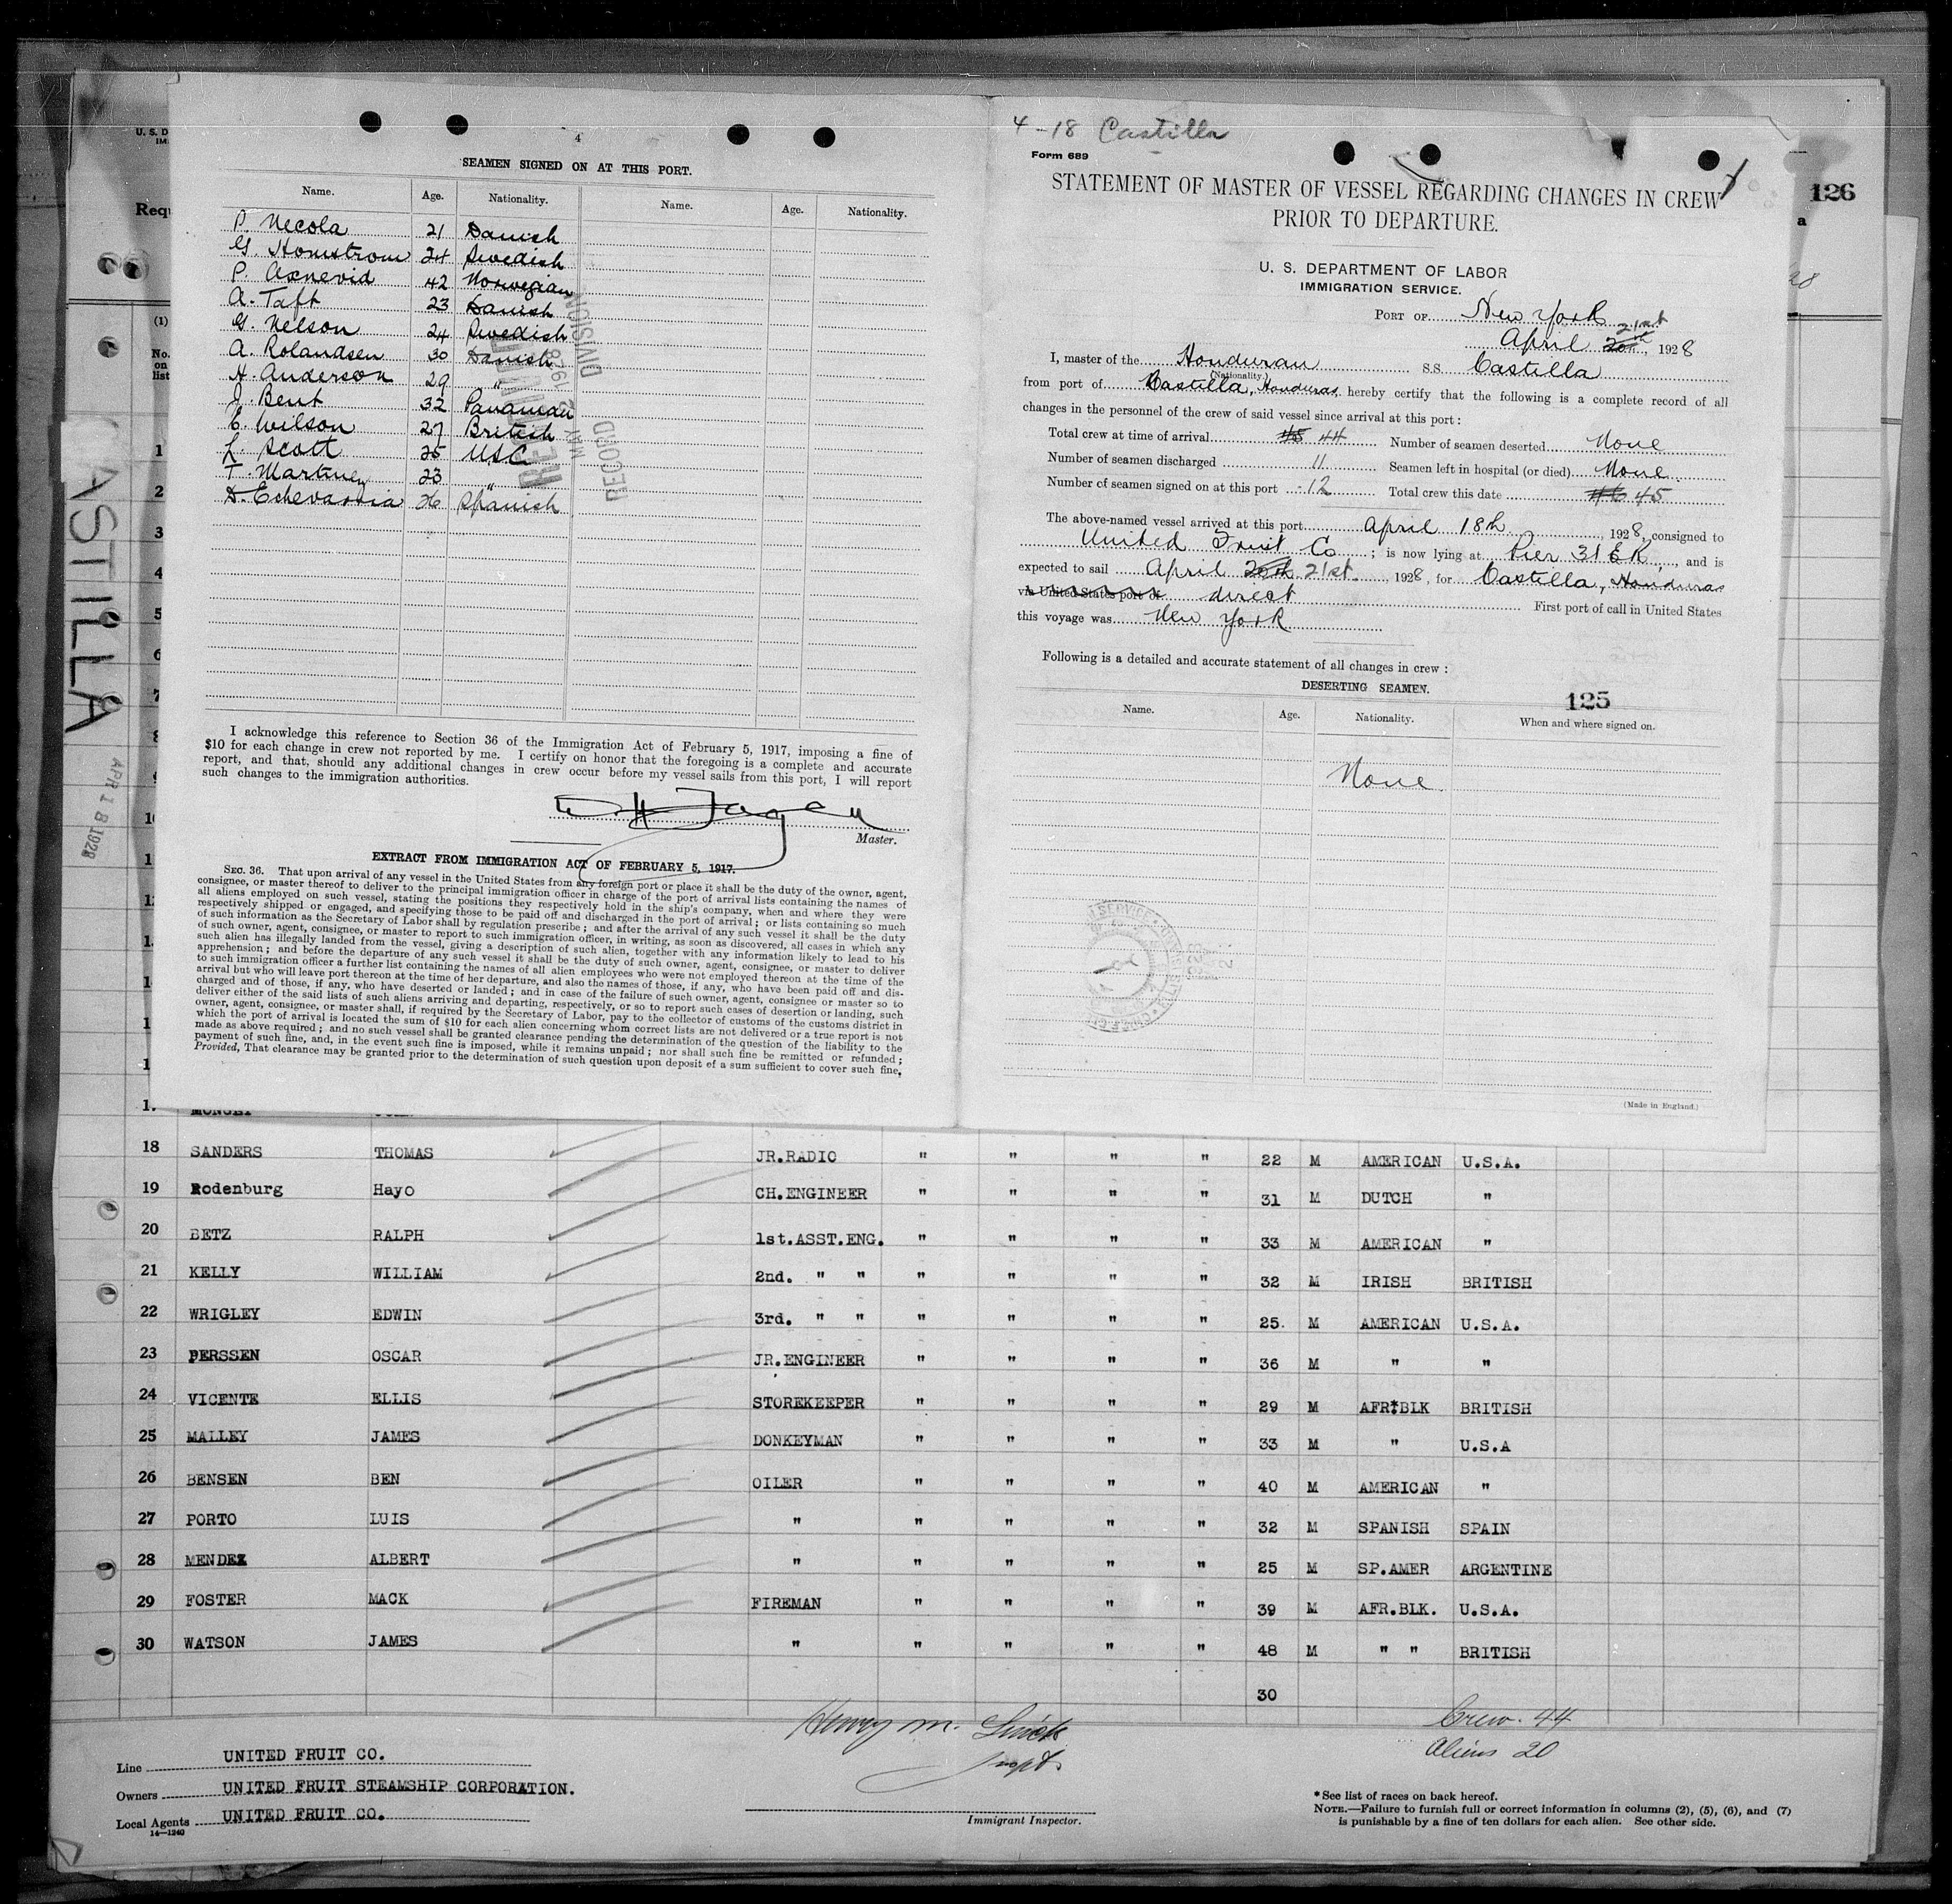 4
SEAMEN SIGNED ON AT THIS PORT.
Name. Age. Nationality. Name. Age. Nationality.
P. Necola 21 Danish
G. Homstrom 24 Swedish
P. Axnevid 42 Norwegian
A. Taft 23 Danish
G. Nelson 24 Swedish
A. Rolandsen 30 Danish
H. Anderson 29 "
J. Bent 32 Panaman
E. Wilson 27 British
L. Scott 25 USC
T. Martinez 23 "
D. Echevarria 26 Spanish
RECORD DIVISION
MAY 2 1928
I acknowledge this reference to Section 36 of the Immigration Act of February 5, 1917, imposing a fine of
$10 for each change in crew not reported by me. I certify on honor that the foregoing is a complete and accurate
report, and that, should any additional changes in crew occur before my vessel sails from this port, I will report
such changes to the immigration authorities.
Master.
EXTRACT FROM IMMIGRATION ACT OF FEBRUARY 5, 1917.
SEC. 36. That upon arrival of any vessel in the United States from any foreign port or place it shall be the duty of the owner, agent,
consignee, or master thereof to deliver to the principal immigration officer in charge of the port of arrival lists containing the names of
all aliens employed on such vessel, stating the positions they respectively hold in the ship's company, when and where they were
respectively shipped or engaged, and specifying those to be paid off and discharged in the port of arrival; or lists containing so much
of such information as the Secretary of Labor shall by regulation prescribe; and after the arrival of any such vessel it shall be the duty
of such owner, agent, consignee, or master to report to such immigration officer, in writing, as soon as discovered, all cases in which any
such alien has illegally landed from the vessel, giving a description of such alien, together with any information likely to lead to his
apprehension; and before the departure of any such vessel it shall be the duty of such owner, agent, consignee, or master to deliver
to such immigration officer a further list containing the names of all alien employees who were not employed thereon at the time of the
arrival but who will leave port thereon at the time of her departure, and also the names of those, if any, who have been paid off and dis-
charged and of those, if any, who have deserted or landed; and in case of the failure of such owner, agent, consignee or master so to
deliver either of the said lists of such aliens arriving and departing, respectively, or so to report such cases of desertion or landing, such
owner, agent, consignee, or master shall, if required by the Secretary of Labor, pay to the collector of customs of the customs district in
which the port of arrival is located the sum of $10 for each alien concerning whom correct lists are not delivered or a true report is not
made as above required; and no such vessel shall be granted clearance pending the determination of the question of the liability to the
payment of such fine, and, in the event such fine is imposed, while it remains unpaid; nor shall such fine be remitted or refunded;
Provided, That clearance may be granted prior to the determination of such question upon deposit of a sum sufficient to cover such fine,
4-18 Castilla
Form 689
STATEMENT OF MASTER OF VESSEL REGARDING CHANGES IN CREW
PRIOR TO DEPARTURE.
126
a
U. S. DEPARTMENT OF LABOR
IMMIGRATION SERVICE.
PORT OF New York
April 20th 21st, 1928
I, master of the Honduran S.S. Castilla
(Nationality.)
from port of Castilla, Honduras, hereby certify that the following is a complete record of all
changes in the personnel of the crew of said vessel since arrival at this port:
Total crew at time of arrival 45 44 Number of seamen deserted None
Number of seamen discharged 11 Seamen left in hospital (or died) None
Number of seamen signed on at this port 12 Total crew this date 46 45
The above-named vessel arrived at this port April 18th, 1928, consigned to
United Fruit Co; is now lying at Pier 31 E R, and is
expected to sail April 20th 21st, 1928, for Castilla, Honduras
via United States port of direct First port of call in United States
this voyage was New York
Following is a detailed and accurate statement of all changes in crew:
DESERTING SEAMEN.
125
Name. Age. Nationality. When and where signed on.
None
(Made in England.)
CASTILLA
APR 18 1928
18 SANDERS THOMAS JR.RADIO " " " " 22 M AMERICAN U.S.A.
19 Rodenburg Hayo CH.ENGINEER " " " " 31 M DUTCH "
20 BETZ RALPH 1st.ASST.ENG. " " " " 33 M AMERICAN "
21 KELLY WILLIAM 2nd. " " " " " " 32 M IRISH BRITISH
22 WRIGLEY EDWIN 3rd. " " " " " " 25. M AMERICAN U.S.A.
23 PERSSEN OSCAR JR.ENGINEER " " " " 36 M " "
24 VICENTE ELLIS STOREKEEPER " " " " 29 M AFR.BLK BRITISH
25 MALLEY JAMES DONKEYMAN " " " " 33 M " U.S.A
26 BENSEN BEN OILER " " " " 40 M AMERICAN "
27 PORTO LUIS " " " " " 32 M SPANISH SPAIN
28 MENDEZ ALBERT " " " " " 25 M SP.AMER ARGENTINE
29 FOSTER MACK FIREMAN " " " " 39 M AFR.BLK. U.S.A.
30 WATSON JAMES " " " " " 48 M " " BRITISH
30
Crew. 44
Aliens 20
Line UNITED FRUIT CO.
Owners UNITED FRUIT STEAMSHIP CORPORATION.
Local Agents UNITED FRUIT CO.
14—1240
Henry M.
Inspt.
Immigrant Inspector.
* See list of races on back hereof.
NOTE.—Failure to furnish full or correct information in columns (2), (5), (6), and (7)
is punishable by a fine of ten dollars for each alien. See other side.